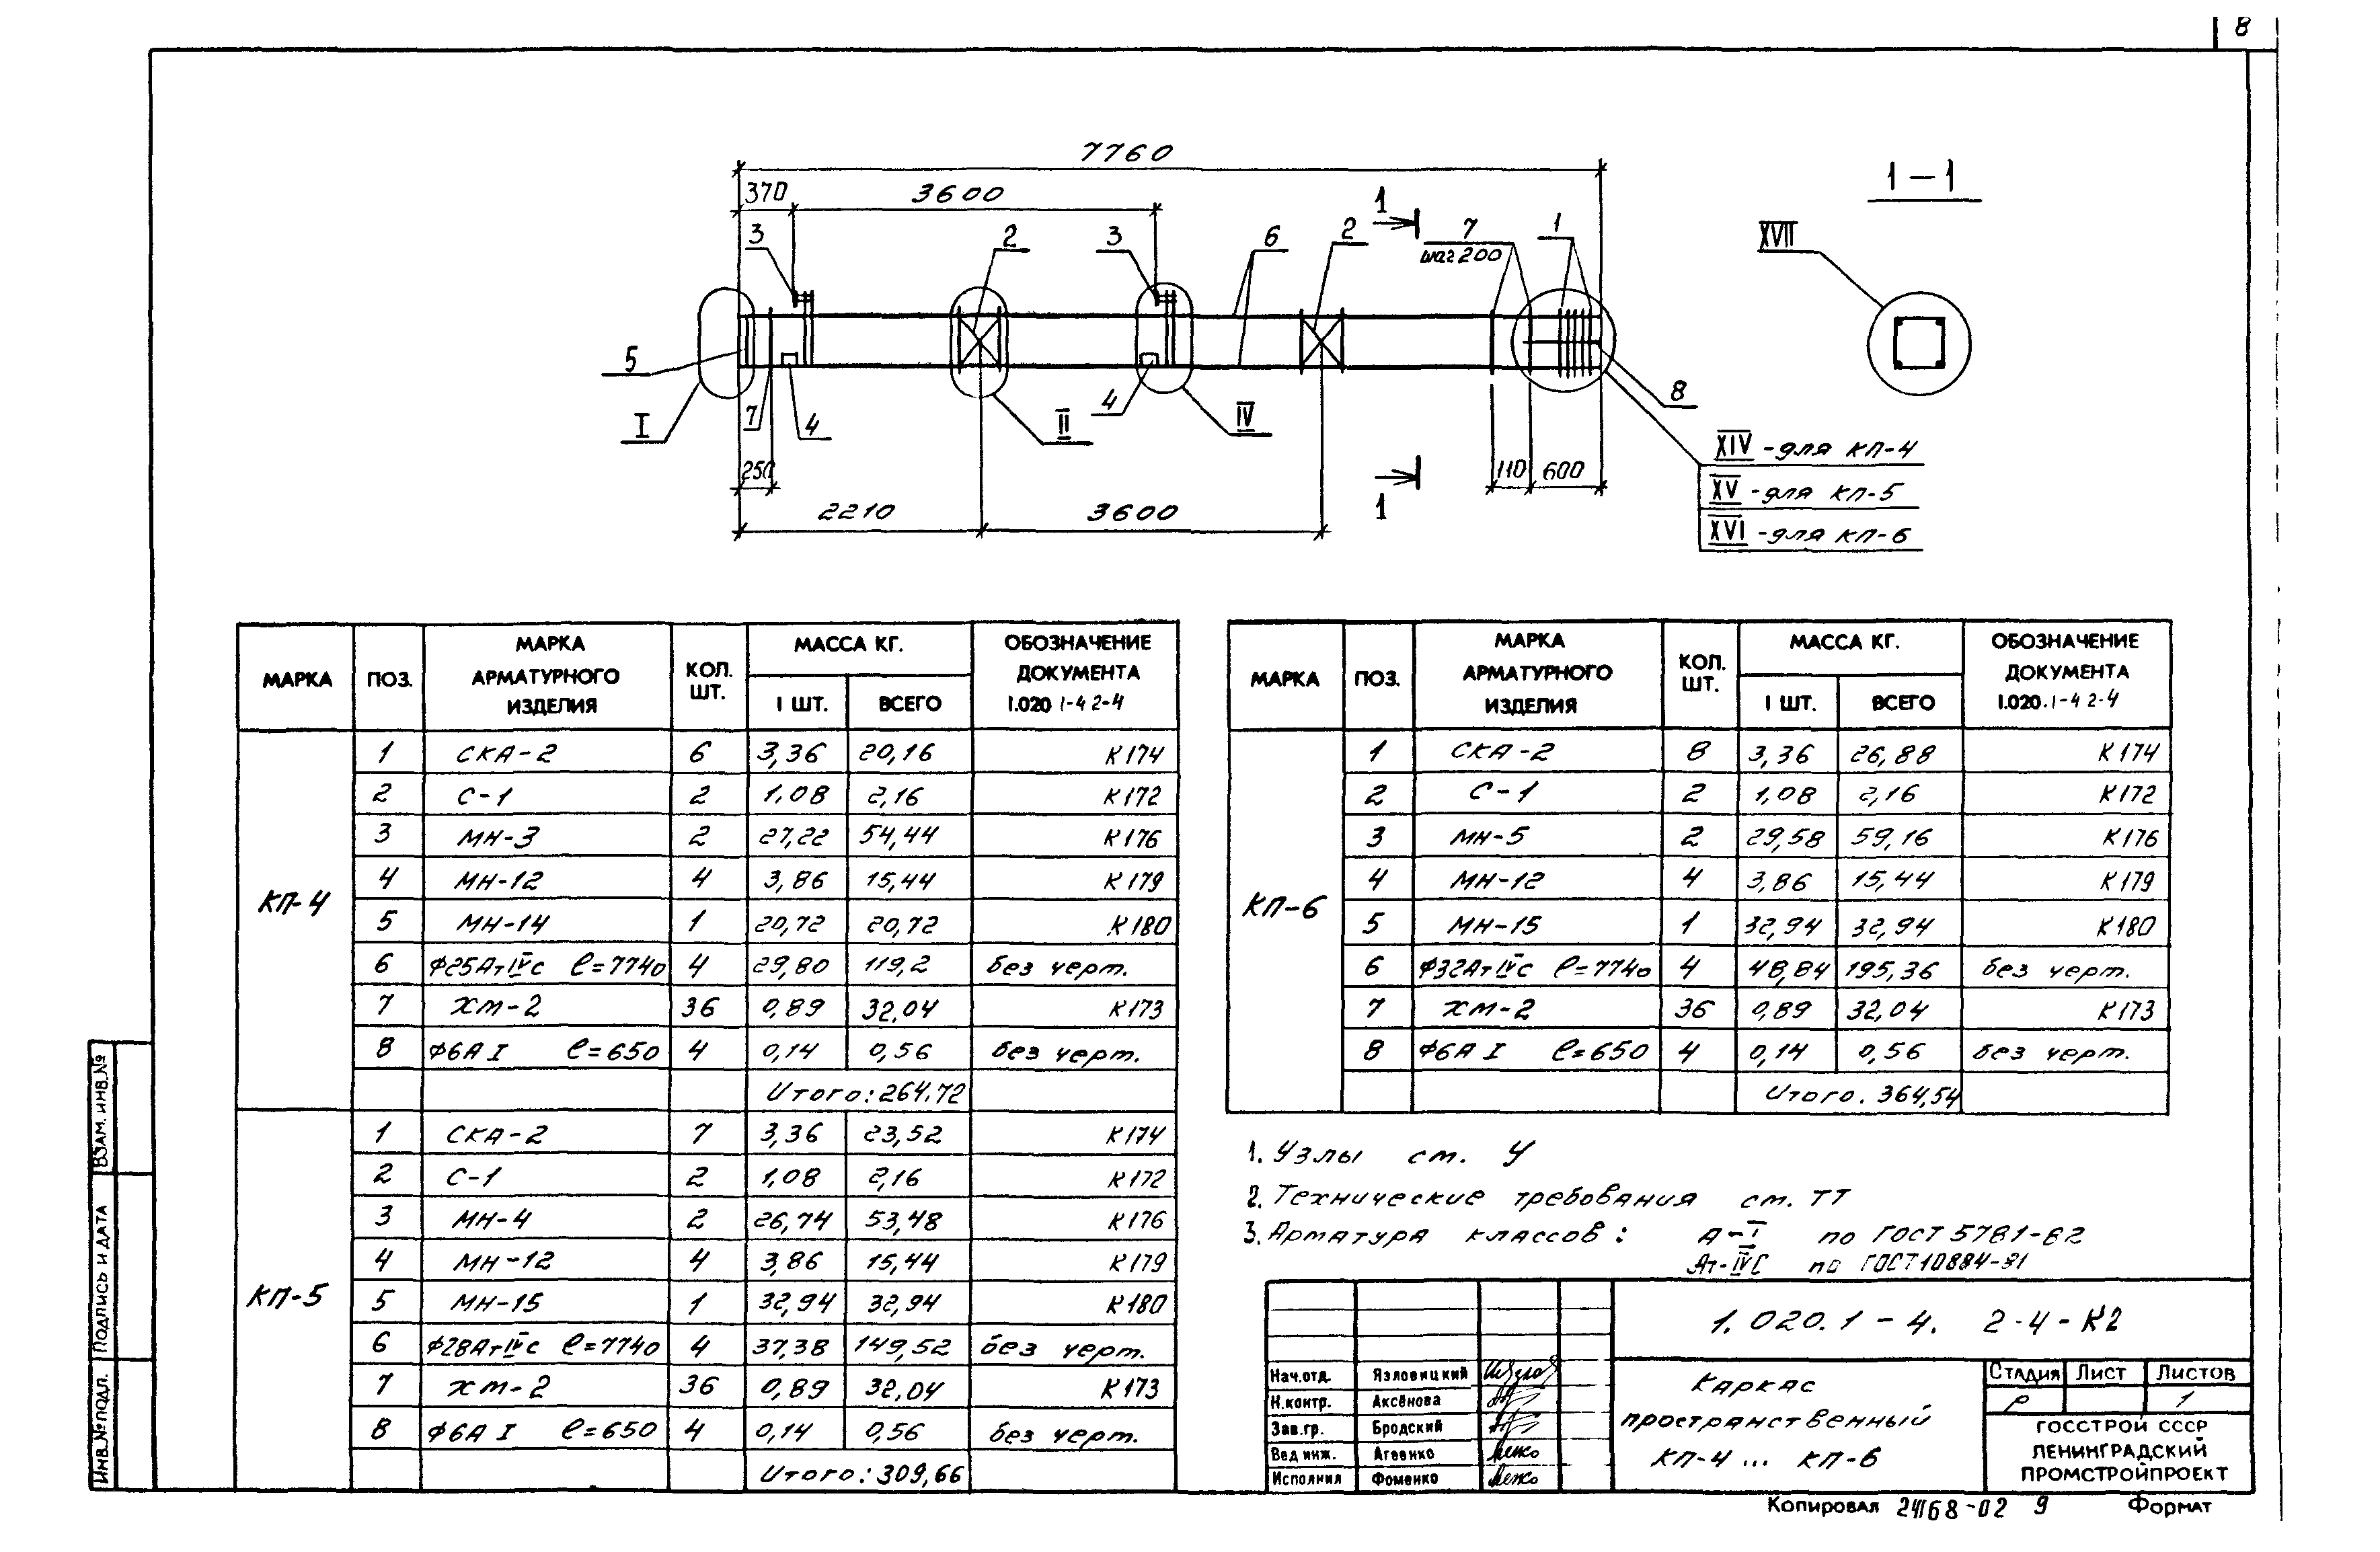 8
7760
370 3600
1-1
1
3 2 3 6 2 7 1
шаг 200
XVII
5
8
I 7 4 II 4 IV
XIV - для КП-4
250 110 600
XV - для КП-5
2210 3600 1
XVI - для КП-6
МАРКА ПОЗ. МАРКА АРМАТУРНОГО ИЗДЕЛИЯ КОЛ. ШТ. МАССА КГ. 1 ШТ. ВСЕГО ОБОЗНАЧЕНИЕ ДОКУМЕНТА 1.020 1-4 2-4
КП-4
1 СКА-2 6 3,36 20,16 К174
2 С-1 2 1,08 2,16 К172
3 МН-3 2 27,22 54,44 К176
4 МН-12 4 3,86 15,44 К179
5 МН-14 1 20,72 20,72 К180
6 Ф25АтIVс ℓ=7740 4 29,80 119,2 без черт.
7 ХМ-2 36 0,89 32,04 К173
8 Ф6А I ℓ=650 4 0,14 0,56 без черт.
Итого: 264,72
КП-5
1 СКА-2 7 3,36 23,52 К174
2 С-1 2 1,08 2,16 К172
3 МН-4 2 26,74 53,48 К176
4 МН-12 4 3,86 15,44 К179
5 МН-15 1 32,94 32,94 К180
6 Ф28АтIVс ℓ=7740 4 37,38 149,52 без черт.
7 ХМ-2 36 0,89 32,04 К173
8 Ф6А I ℓ=650 4 0,14 0,56 без черт.
Итого: 309,66
МАРКА ПОЗ. МАРКА АРМАТУРНОГО ИЗДЕЛИЯ КОЛ. ШТ. МАССА КГ. 1 ШТ. ВСЕГО ОБОЗНАЧЕНИЕ ДОКУМЕНТА 1.020.1-4 2-4
КП-6
1 СКА-2 8 3,36 26,88 К174
2 С-1 2 1,08 2,16 К172
3 МН-5 2 29,58 59,16 К176
4 МН-12 4 3,86 15,44 К179
5 МН-15 1 32,94 32,94 К180
6 Ф32АтIVс ℓ=7740 4 48,84 195,36 без черт.
7 ХМ-2 36 0,89 32,04 К173
8 Ф6А I ℓ=650 4 0,14 0,56 без черт.
Итого. 364,54
1. Узлы см. У
2. Технические требования см. ТТ
3. Арматура классов: А-I по ГОСТ 5781-82
Ат-IVС по ГОСТ 10884-81
1.020.1-4. 2-4-К2
Нач.отд. Язловицкий
Н.контр. Аксёнова
Зав.гр. Бродский
Вед инж. Агеенко
Исполнил Фоменко
Каркас
пространственный
КП-4 ... КП-6
Стадия Лист Листов
Р 1
ГОССТРОЙ СССР
ЛЕНИНГРАДСКИЙ
ПРОМСТРОЙПРОЕКТ
Копировал 24168-02 9 Формат
ВЗАМ. ИНВ.№
ПОДПИСЬ И ДАТА
ИНВ.№ПОДЛ.